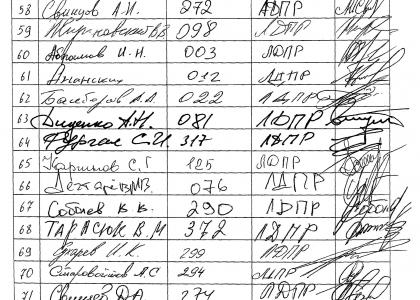 58 Свищов А.И. 272 ЛДПР
59 Жириновский В.В. 098 ЛДПР
60 Абрамов И.Н. 003 ЛДПР
61 Ананских 012 ЛДПР
62 Балберов А.А. 022 ЛДПР
63 Диденко А.Н. 081 ЛДПР
64 Фургал С.И. 317 ЛДПР
65 Каргинов С.Г 125 ЛДПР
66 Дегтярев М.В. 076 ЛДПР
67 Соболев В.В. 290 ЛДПР
68 ТАРАСЮК В.М 372 ЛДПР
69 И.К. 299 ЛДПР
70 Старовойтов А.С 294 ЛДПР
71 Свинцов Д.А. 274 ЛДПР